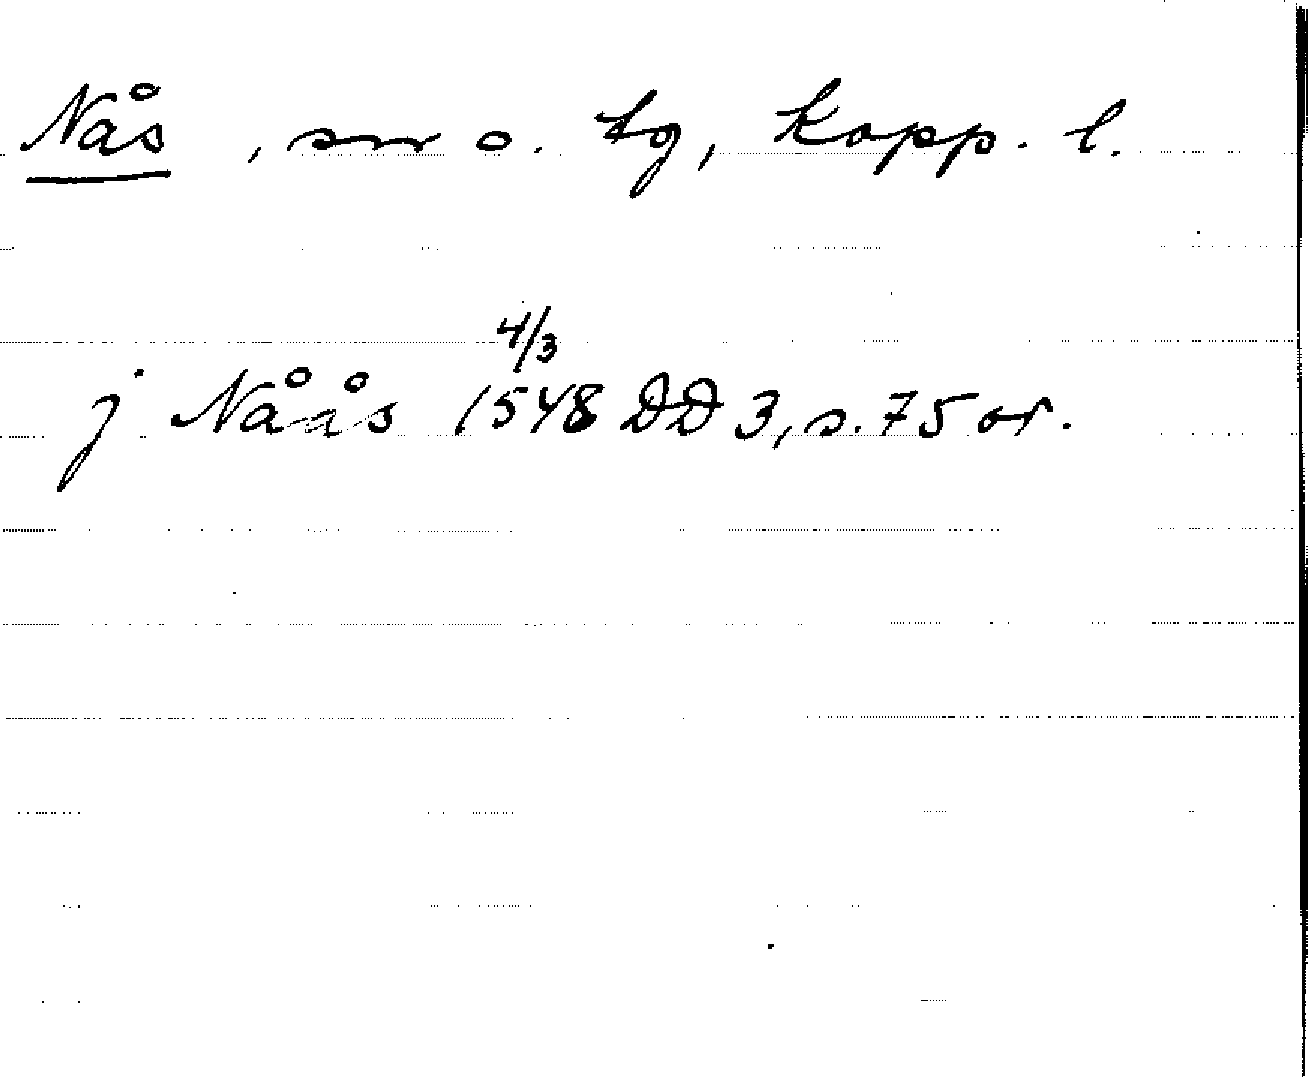 Nås, sn o. tg, Kopp. l.
j Nåås 1548 4/3 DD 3, s. 75 or.